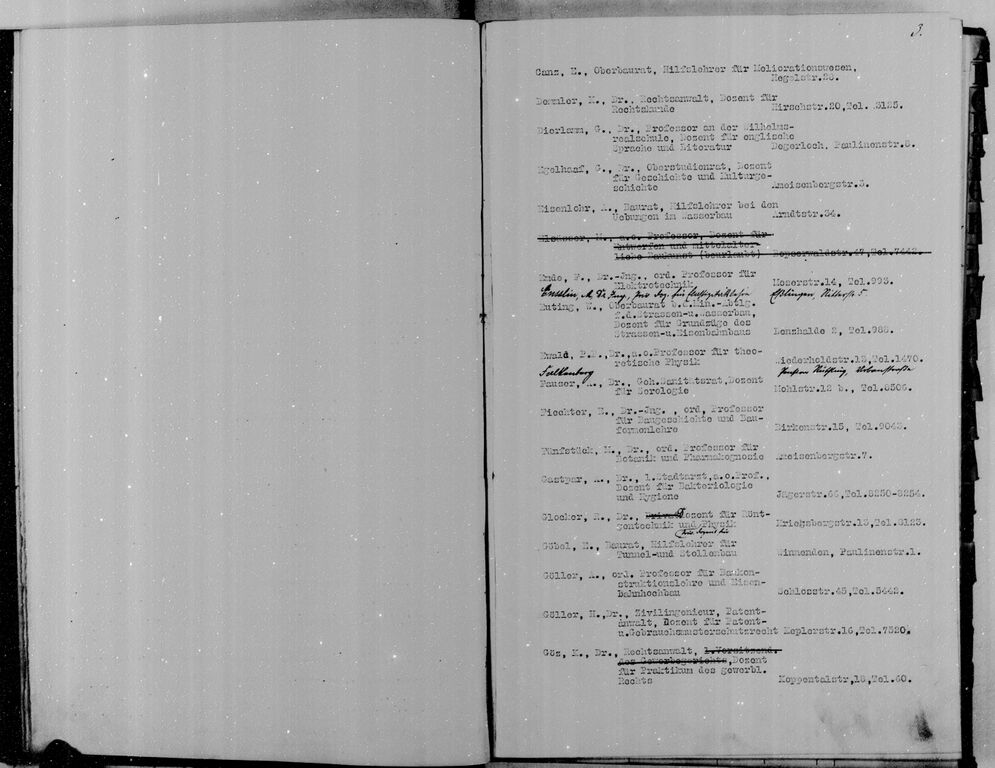 3.
Canz, E., Oberbaurat, Hilfslehrer für Meliorationswesen,
Hegelstr.28.
Dr., Rechtsanwalt, Dozent für
Rechtskunde Hirschstr.20,Tel. 3125.
Dierlamm, G., Dr., Professor an der Wilhelms-
realschule, Dozent für englische
Sprache und Literatur Degerloch, Paulinenstr.8.
Egelhaaf, G., Dr., Oberstudienrat, Dozent
für Geschichte und Kulturge-
schichte Ameisenbergstr.3.
Eisenlohr, A., Baurat, Hilfslehrer bei den
Uebungen im Wasserbau Arndtstr.34.
Elsässer, M., a.o. Professor, Dozent für
Entwerfen und mittelalter-
liche Baukunst (beurlaubt) Hopserwaldstr.47,Tel.7442.
Emde, F., Dr.-Jng., ord. Professor für
Elektrotechnik Moserstr.14, Tel.993.
Ensslin, M. Dr. Jng, Eßlingen, 5.
Euting, W., Oberbaurat b.d.Min.-Abtlg.
f.d.Strassen-u.Wasserbau,
Dozent für Grundzüge des
Strassen-u.Eisenbahnbaus Lenzhalde 2, Tel.988.
Ewald, P.P.,Dr.,a.o.Professor für theo-
retische Physik Wiederholdstr.13,Tel.1470.
Pension Urbanstraße
Fauser, A., Dr., Geh.Sanitätsrat,Dozent
für Serologie Mohlstr.12 b., Tel.8506.
Fiechter, E., Dr.-Jng. , ord, Professor
für Baugeschichte und Bau-
formenlehre Birkenstr.15, Tel.9043.
Fünfstück, M., Dr., ord. Professor für
Botanik und Pharmakognosie Ameisenbergstr.7.
Gastpar, A., Dr., 1.Stadtarzt,a.o.Prof.,
Dozent für Bakteriologie
und Hygiene Jägerstr.66,Tel.8250-8254.
Glocker, R., Dr., PrivatDozent für Rönt-
gentechnik und Physik Kriegsbergstr.13,Tel.8123.
Göbel, E., Baurat, Hilfslehrer für
Tunnel-und Stollenbau Winnenden, Paulinenstr.1.
Göller, A., ord. Professor für Baukon-
struktionslehre und Eisen-
bahnhochbau Schlosstr.45,Tel.5442.
Göller, H.,Dr., Zivilingenieur, Patent-
anwalt, Dozent für Patent-
u.Gebrauchsmusterschutzrecht Keplerstr.16,Tel.7520.
Göz, K., Dr., Rechtsanwalt, 1.Vorsitzend.
des Gewerbegerichts,Dozent
für Praktikum des gewerbl.
Rechts Koppentalstr,18,Tel.60.